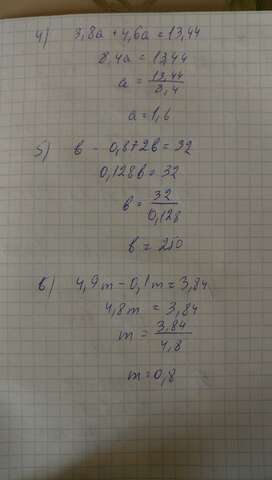 4) 3,8a + 4,6a = 13,44
8,4a = 13,44
a = 13,44/8,4
a = 1,6
5) в - 0,872в = 32
0,128в = 32
в = 32/0,128
в = 250
6) 4,9m - 0,1m = 3,84
4,8m = 3,84
m = 3,84/4,8
m = 0,8